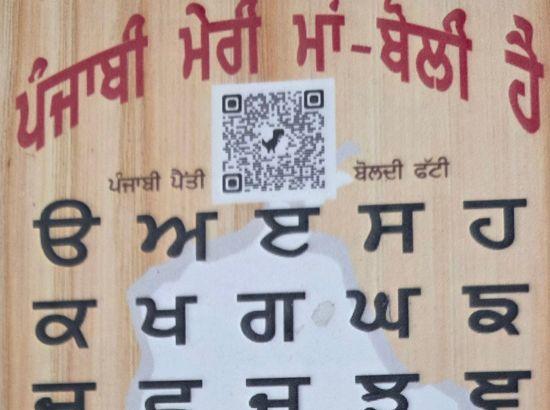 ਪੰਜਾਬੀ ਮੇਰੀ ਮਾਂ-ਬੋਲੀ ਹੈ
ਪੰਜਾਬੀ ਪੈਂਤੀ ਬੋਲਦੀ ਫੱਟੀ
ੳ ਅ ੲ ਸ ਹ
ਕ ਖ ਗ ਘ ਙ
ਚ ਛ ਜ ਝ ਞ